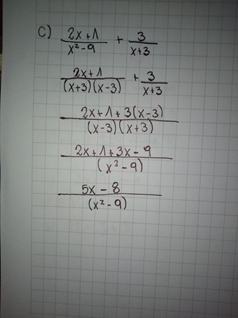 c) (2x+1)/(x²-9) + 3/(x+3)
(2x+1)/((x+3)(x-3)) + 3/(x+3)
(2x+1+3(x-3))/((x-3)(x+3))
(2x+1+3x-9)/((x²-9))
(5x-8)/((x²-9))